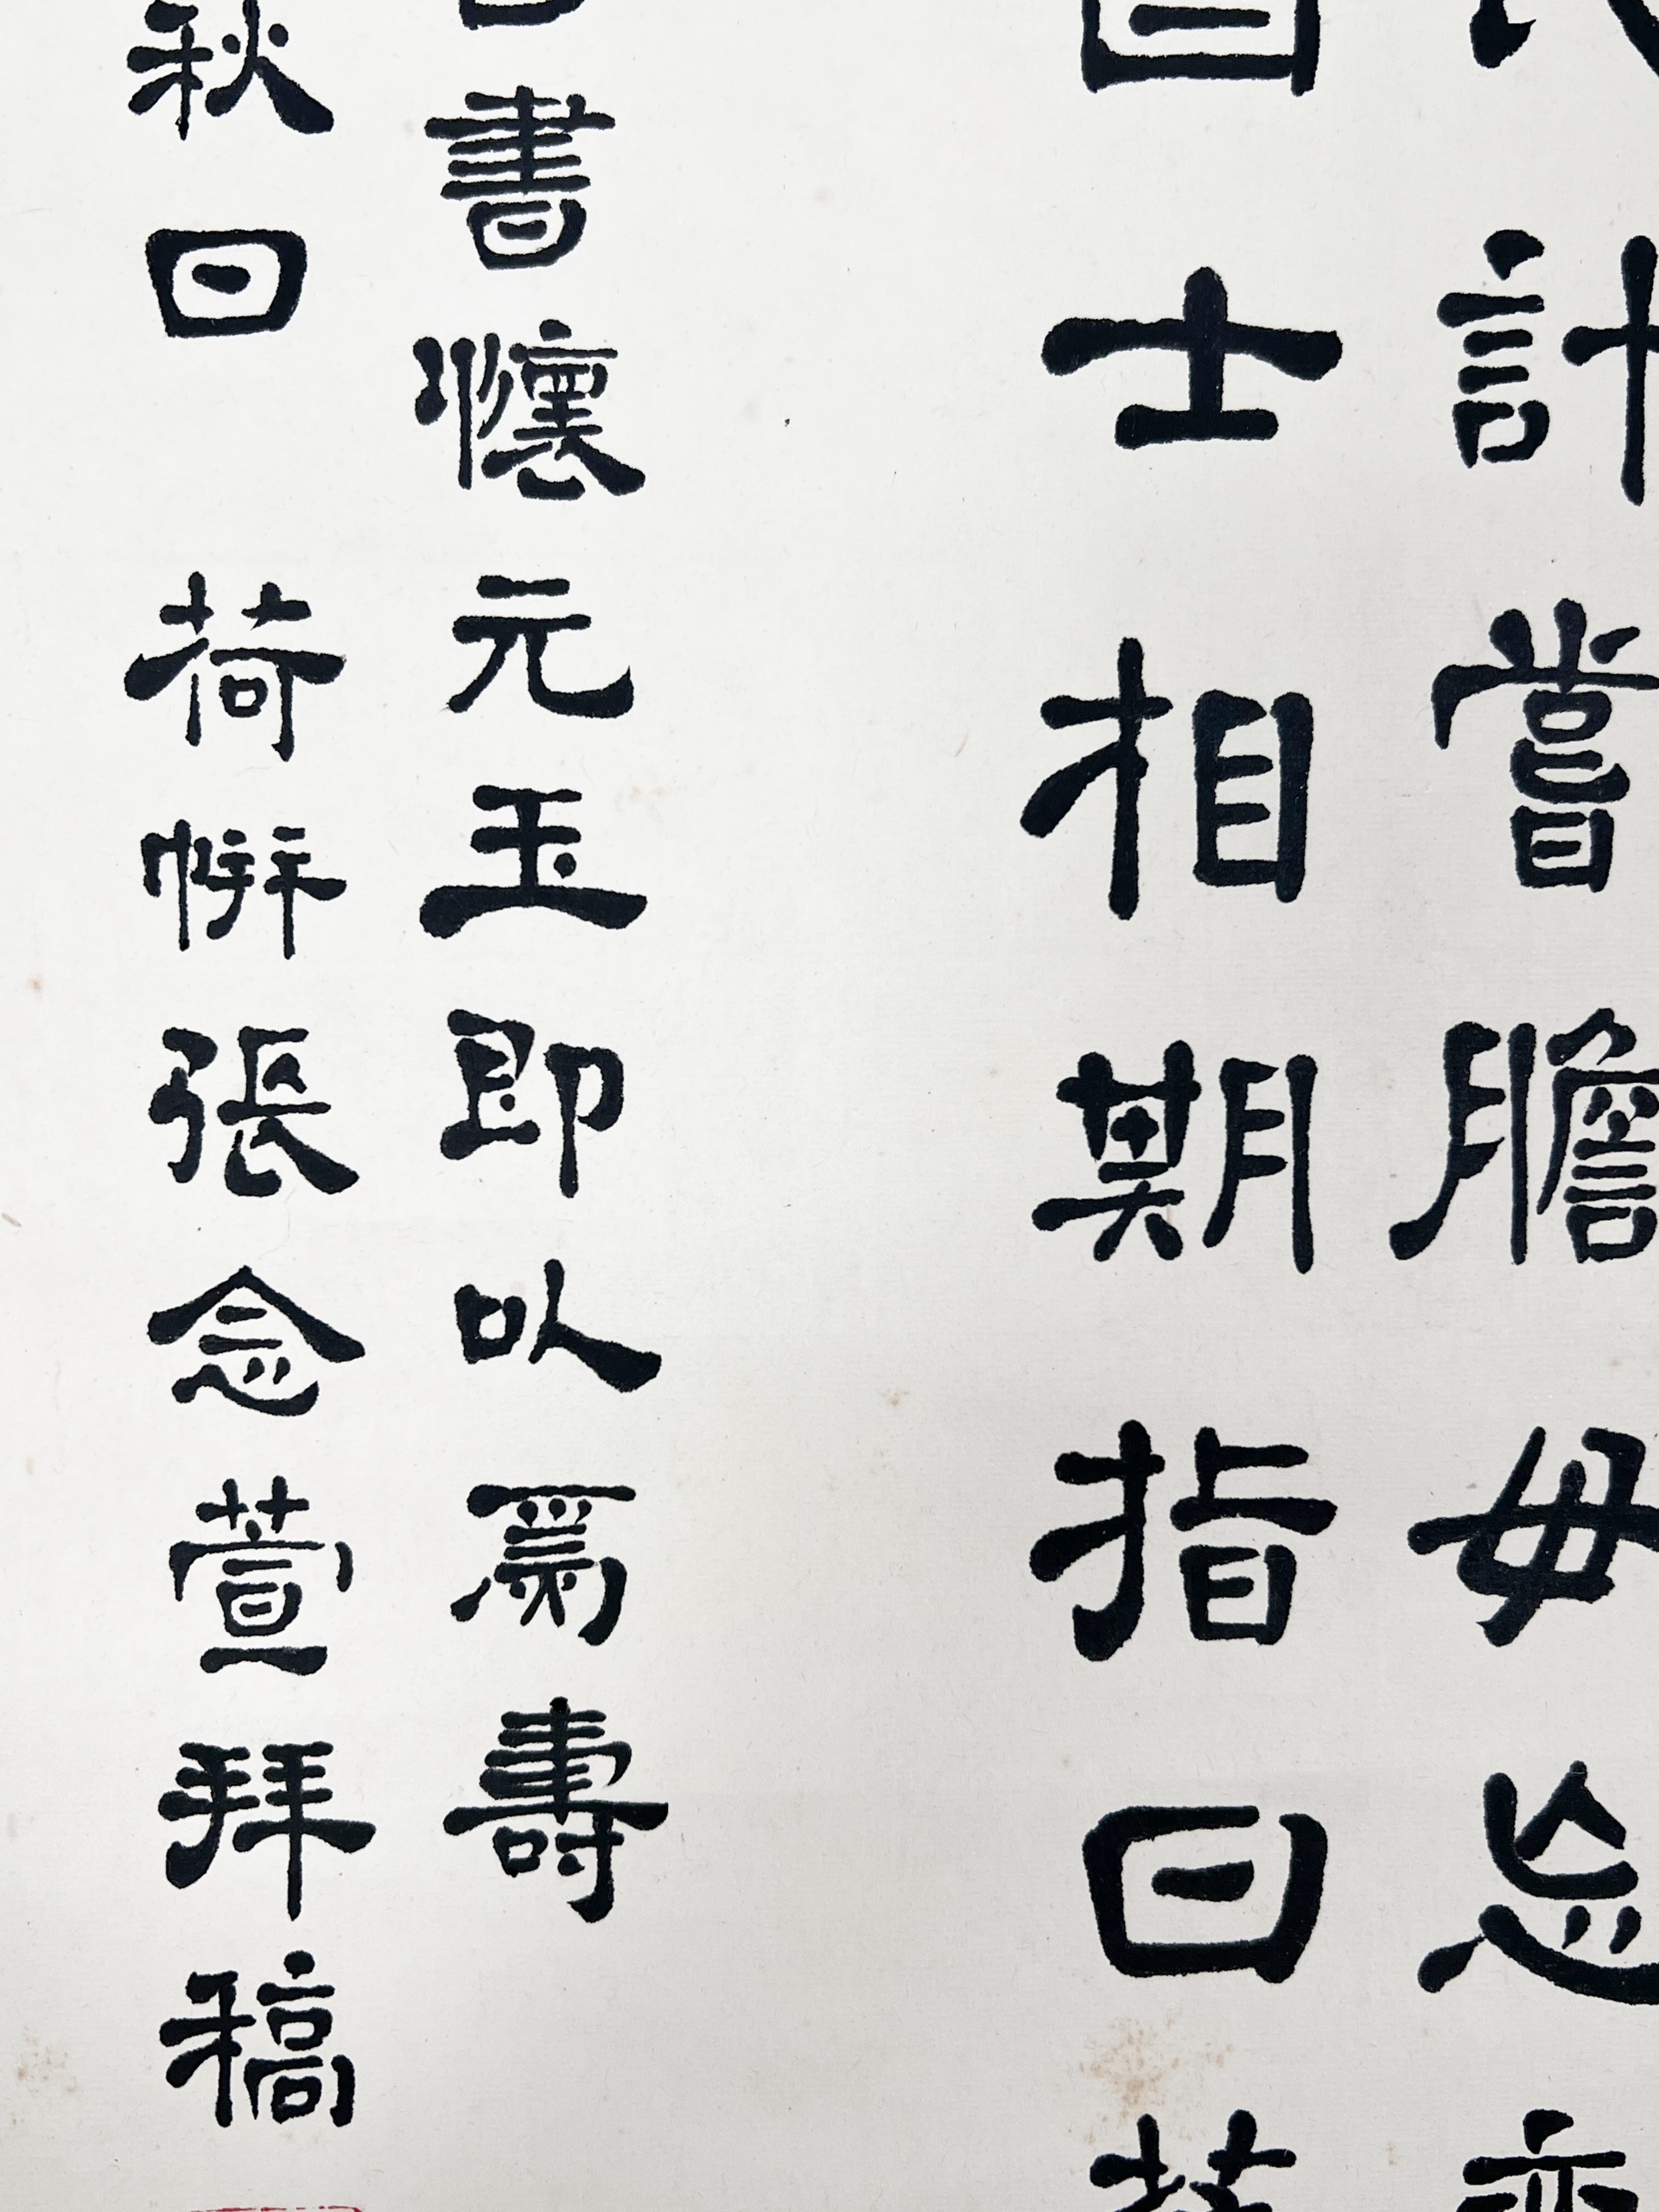 計嘗膽毋忘
士相期指日
書懷元玉即以爲壽
秋日 荷帲張念萱拜稿